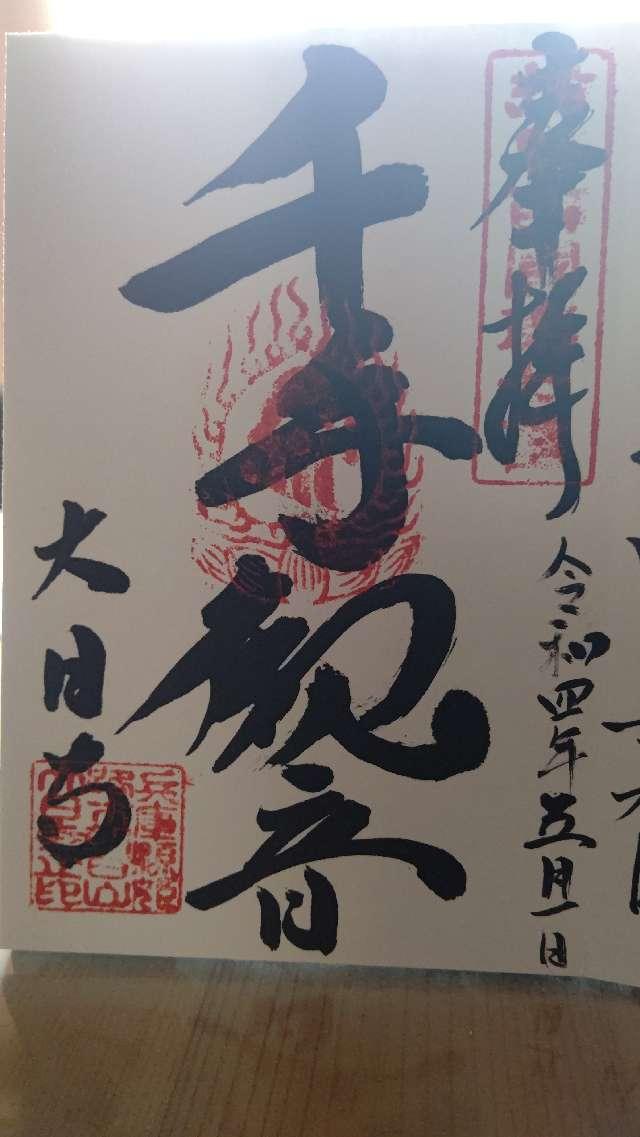 奉拝
令和四年五月一日
千手観音
大日寺